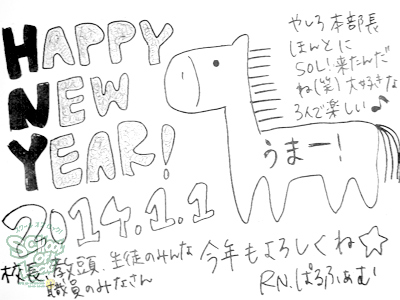 HAPPY
NEW
YEAR!
2014.1.1
やしろ本部長
ほんとに
SOL!来たんだ
ね(笑)大好きな
3人で楽しい♪
うまー!
校長、教頭、生徒のみんな
職員のみなさん
今年もよろしくね☆
RN.ぱるふぁむ